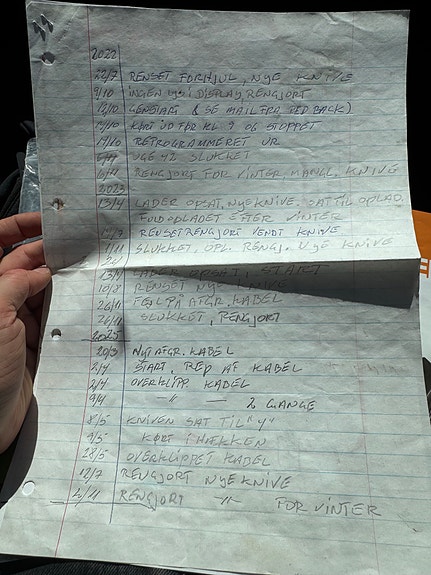 2022
22/7 RENSET FORHJUL, NYE KNIVE
9/10 INGEN LYS I DISPLAY, RENGJORT
12/10 GENSTART & SE MAIL FRA RED BACK)
KØRT UD FØR KL 9 OG STOPPET
17/10 RETROGRAMMERET UR
UGE 42 SLUKKET
RENGJORT FOR VINTER, MANGL. KNIVE
2023
13/4 LADER OPSAT, NYE KNIVE. SAT TIL OPLAD.
FULD OPLADET EFTER VINTER
RENSET RENGJORT VENDT KNIVE
1/11 SLUKKET, OPL. RENGJ. NYE KNIVE
LADER OPSET, START
10/8 RENSET NYE KNIVE
26/11 FEJL PÅ AFGR. KABEL
26/11 SLUKKET, RENGJORT
2025
20/3 NYT AFGR. KABEL
2/4 START, REP AF KABEL
2/4 OVERKLIPP. KABEL
9/4 —〃— — 2 GANGE
8/5 KNIVEN SAT TIL "4"
9/5 KØRT I HÆKKEN
28/5 OVERKLIPPET KABEL
12/7 RENGJORT NYE KNIVE
2/11 RENGJORT —〃— FOR VINTER